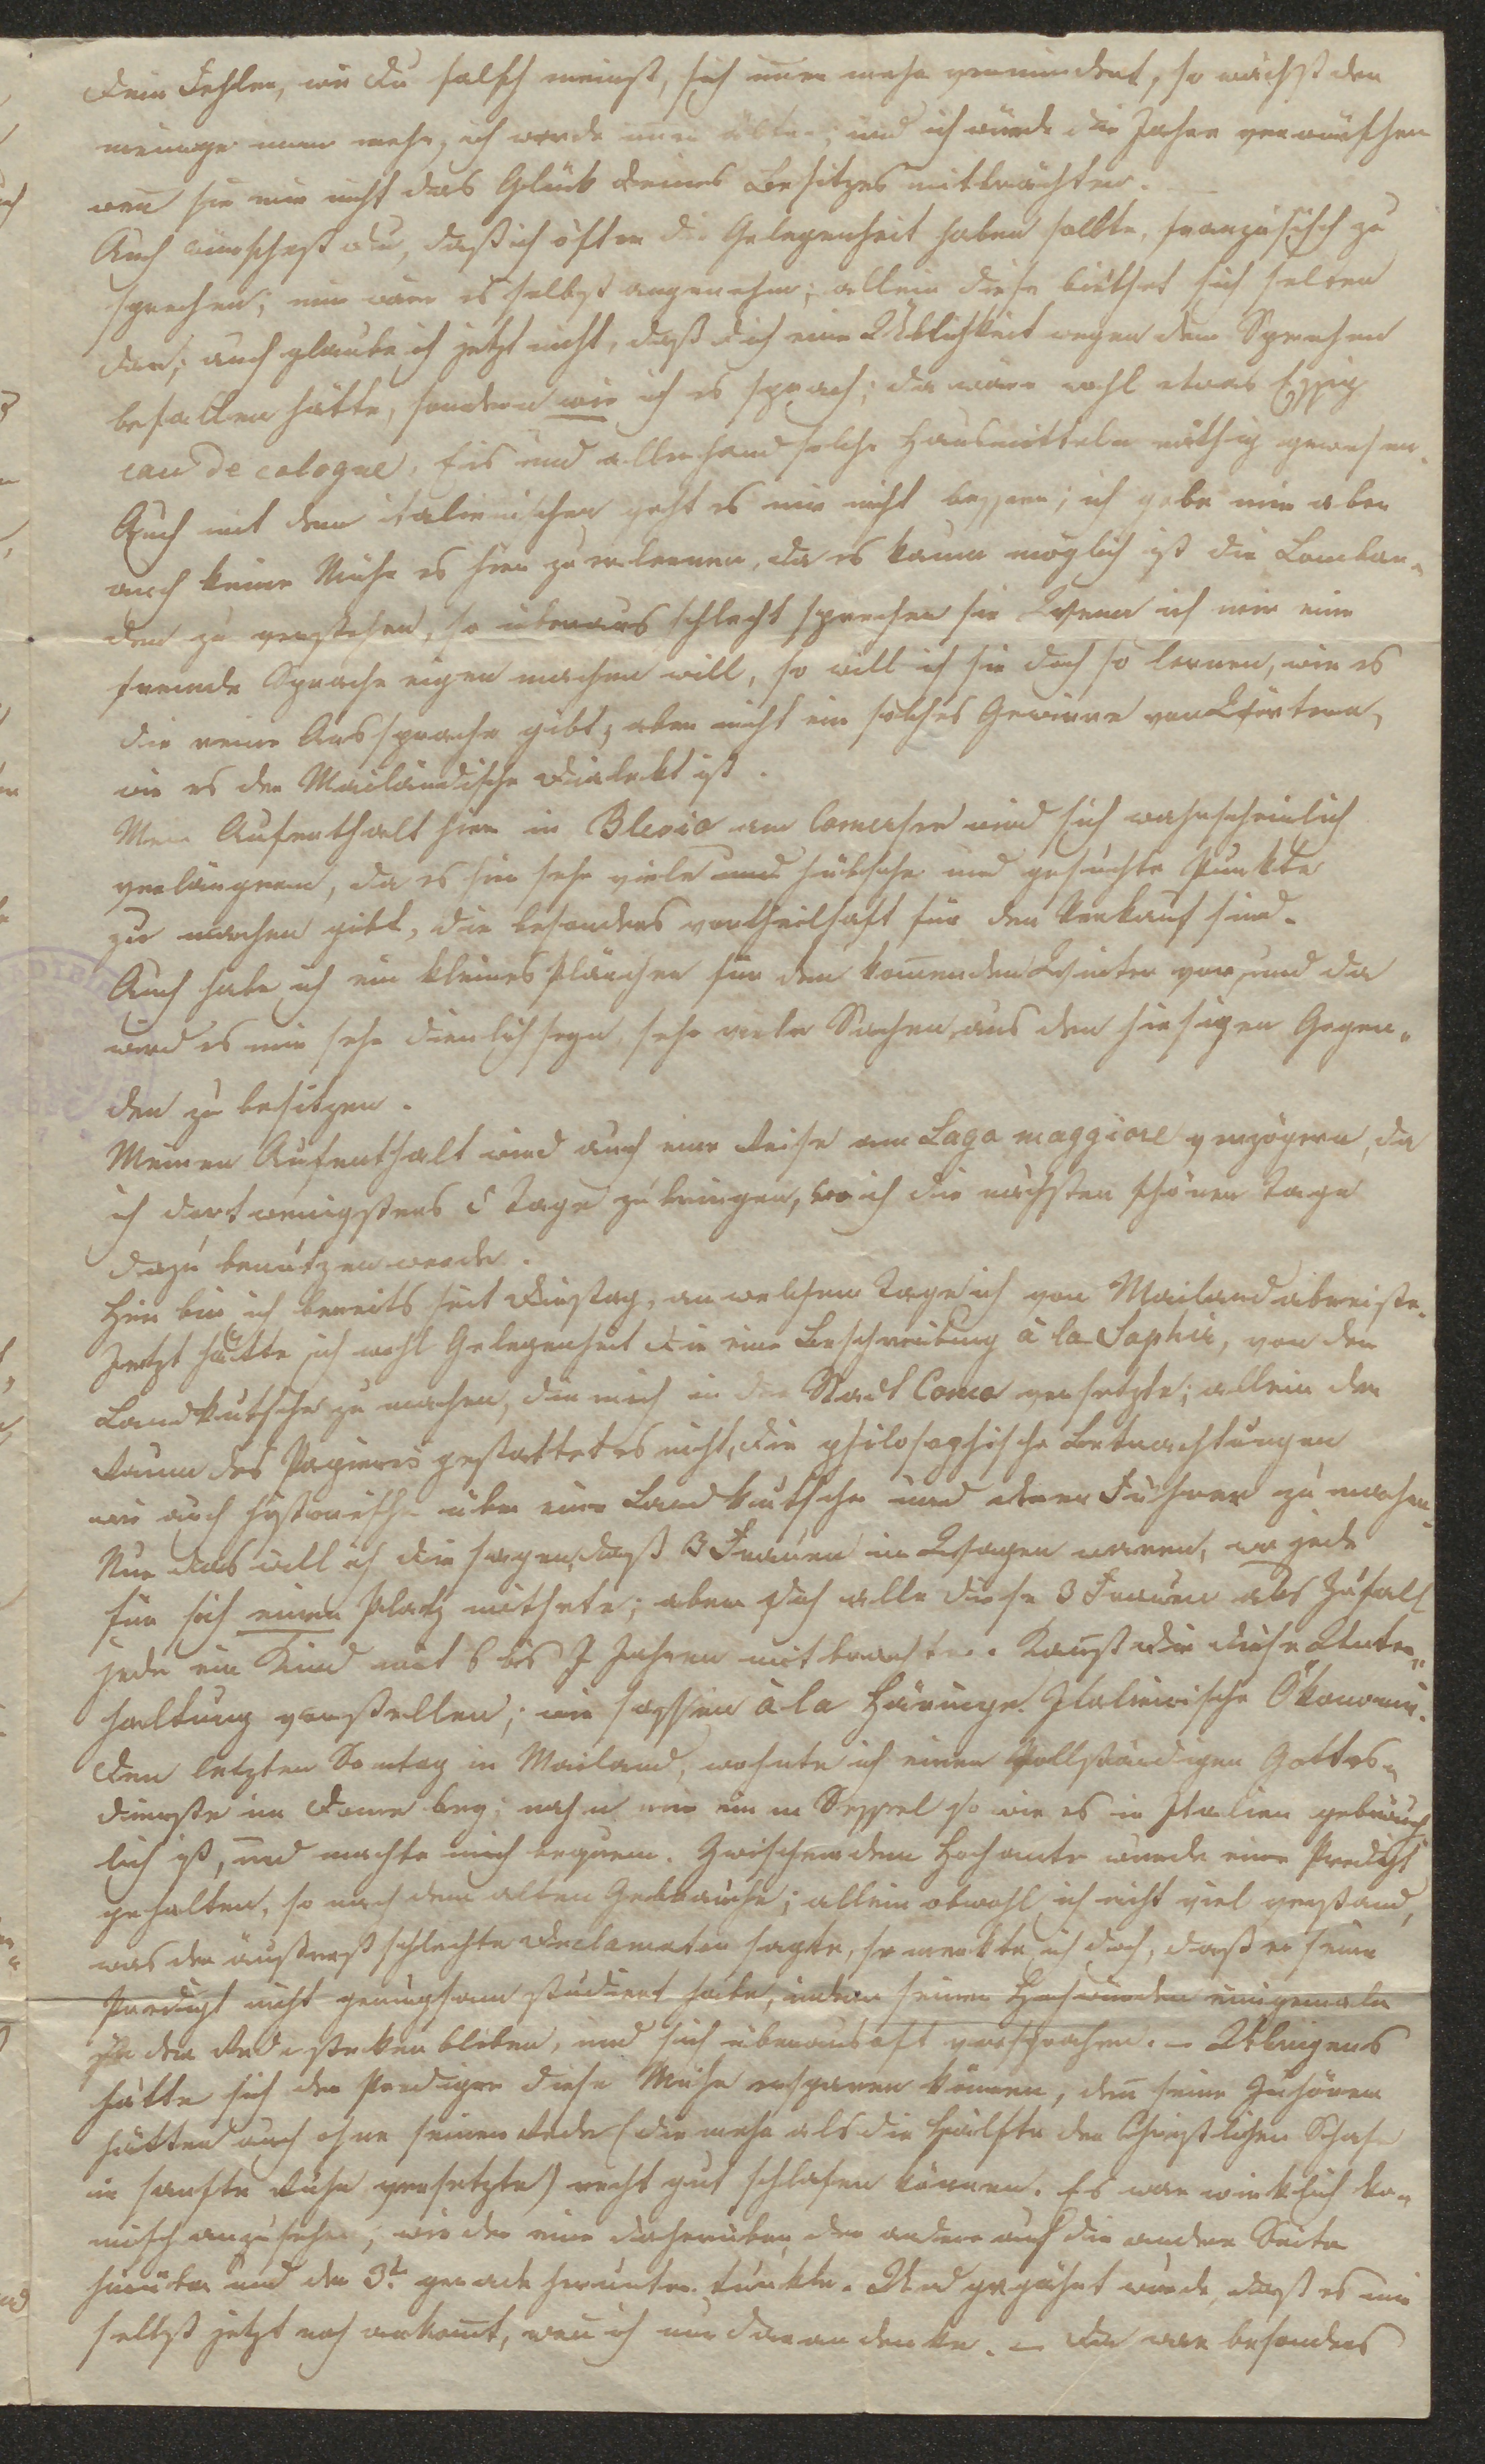 Dein Fehler, wie du falsch meinst, sich imer mehr vermindert, so wächst der
meinige imer mehr, ich werde imer älter; und ich würde die Jahre verwünschen
wen̄ sie mir nicht das Glück deines Besitzes mitbrächten.
Auch wünschest du, daß ich öfter die Gelegenheit haben sollte, französisch zu
sprechen; mir wäre es selbst angenehm; allein diese biethet sich selten
dar; auch glaube ich jetzt nicht, daß dich eine Üblichkeit wegen dem Sprechen
befallen hätte, sondern wie ich es sprach; da wäre wohl etwas Essig
eau de cologne, Eis und allerhand solche Hausmitteln nöthig gewesen.
Auch mit dem italienischen geht es mir nicht besser; ich gebe mir aber
auch keine Mühe es hier zu erlernen, da es kaum möglich ist die Lombar-
den zu verstehen, so überaus schlecht sprechen sie Wenn ich mir eine
fremde Sprache eigen machen will, so will ich sie doch so lernen, wie es
die reine Aussprache gibt, aber nicht ein solches Gewirre von Wörtern,
wie es der Mailändische Dialekt ist.
Mein Aufenthalt hier in Blevio am Comersee wird sich wahrscheinlich
verlängern, da es hier sehr viele und hübsche und gesuchte Punkte
zu machen gibt, die besonders vortheilhaft für den Verkauf sind.
Auch habe ich ein kleines Plänchen für den kom̄enden Winter vor, und da
wird es mir sehr dienlich seyn, sehr viele Sachen aus den hiesigen Gegen-
den zu besitzen.
Meinen Aufenthalt wird auch eine Reise am Lago maggiore verzögern, da
ich dort wenigstens 5 Tage zubringen, wo ich die nächsten schönen Tage
dazu benützen werde.
Hier bin ich bereits seit Dinstag, an welchem Tage ich von Mailand abreiste.
Jetzt hätte ich wohl Gelegenheit dir eine Beschreibung à la Saphir, von der
Landkutsche zu machen, die mich in die Stadt Como versetzte; allein der
Raum des Papieres gestattet es nicht, dir philosophische Betrachtungen
wie auch hystorische über eine Landkutsche und deren Führer zu machen.
Nur das will ich dir sagen, daß 3 Frauen im Wagen waren, wo jede
für sich einen Platz miethete; aber doch alle diese 3 Frauen als Zufall
jede ein Kind mit 6 bis 7 Jahren mitbrachten. Kan̄st dir diese Unter-
haltung vorstellen; wir sassen à la Häringe. Italienische Ökonomie.
Den letzten Sontag in Mailand, wohnte ich einen vollständigen Gottes-
dienste im Dome bey; nahm mir einen Sessel so wie es in Italien gebräuch-
lich ist, und machte mich bequem. Zwischen dem Hochamte wurde eine Predigt
gehalten, so nach dem alten Gebrauche; allein obwohl ich nicht viel verstand,
was der äußerst schlechte Declamator sagte, so merkte ich doch, daß er seine
Predigt nicht genugsam studiert habe, indem seiner Hochwürden einigemale
in der Rede stecken blieben, und sich überaus oft versprachen. – Uibrigens
hätte sich der Prediger diese Mühe ersparen können, den̄ seine Zuhörer
hätten auch ohne seiner Rede (die mehr als die Hälfte der Christlichen Schafe
in sanfte Ruhe versetzte) recht gut schlafen können. Es war wirklich ko-
misch anzusehen, wie der eine daherüber, der andere auf die andere Seite
hinüber und der 3t. gerade herunter tunkte. Und gegähnt wurde, daß es mir
selbst jetzt noch ankom̄t, wen̄ ich nur daran denke. – Da war besonders